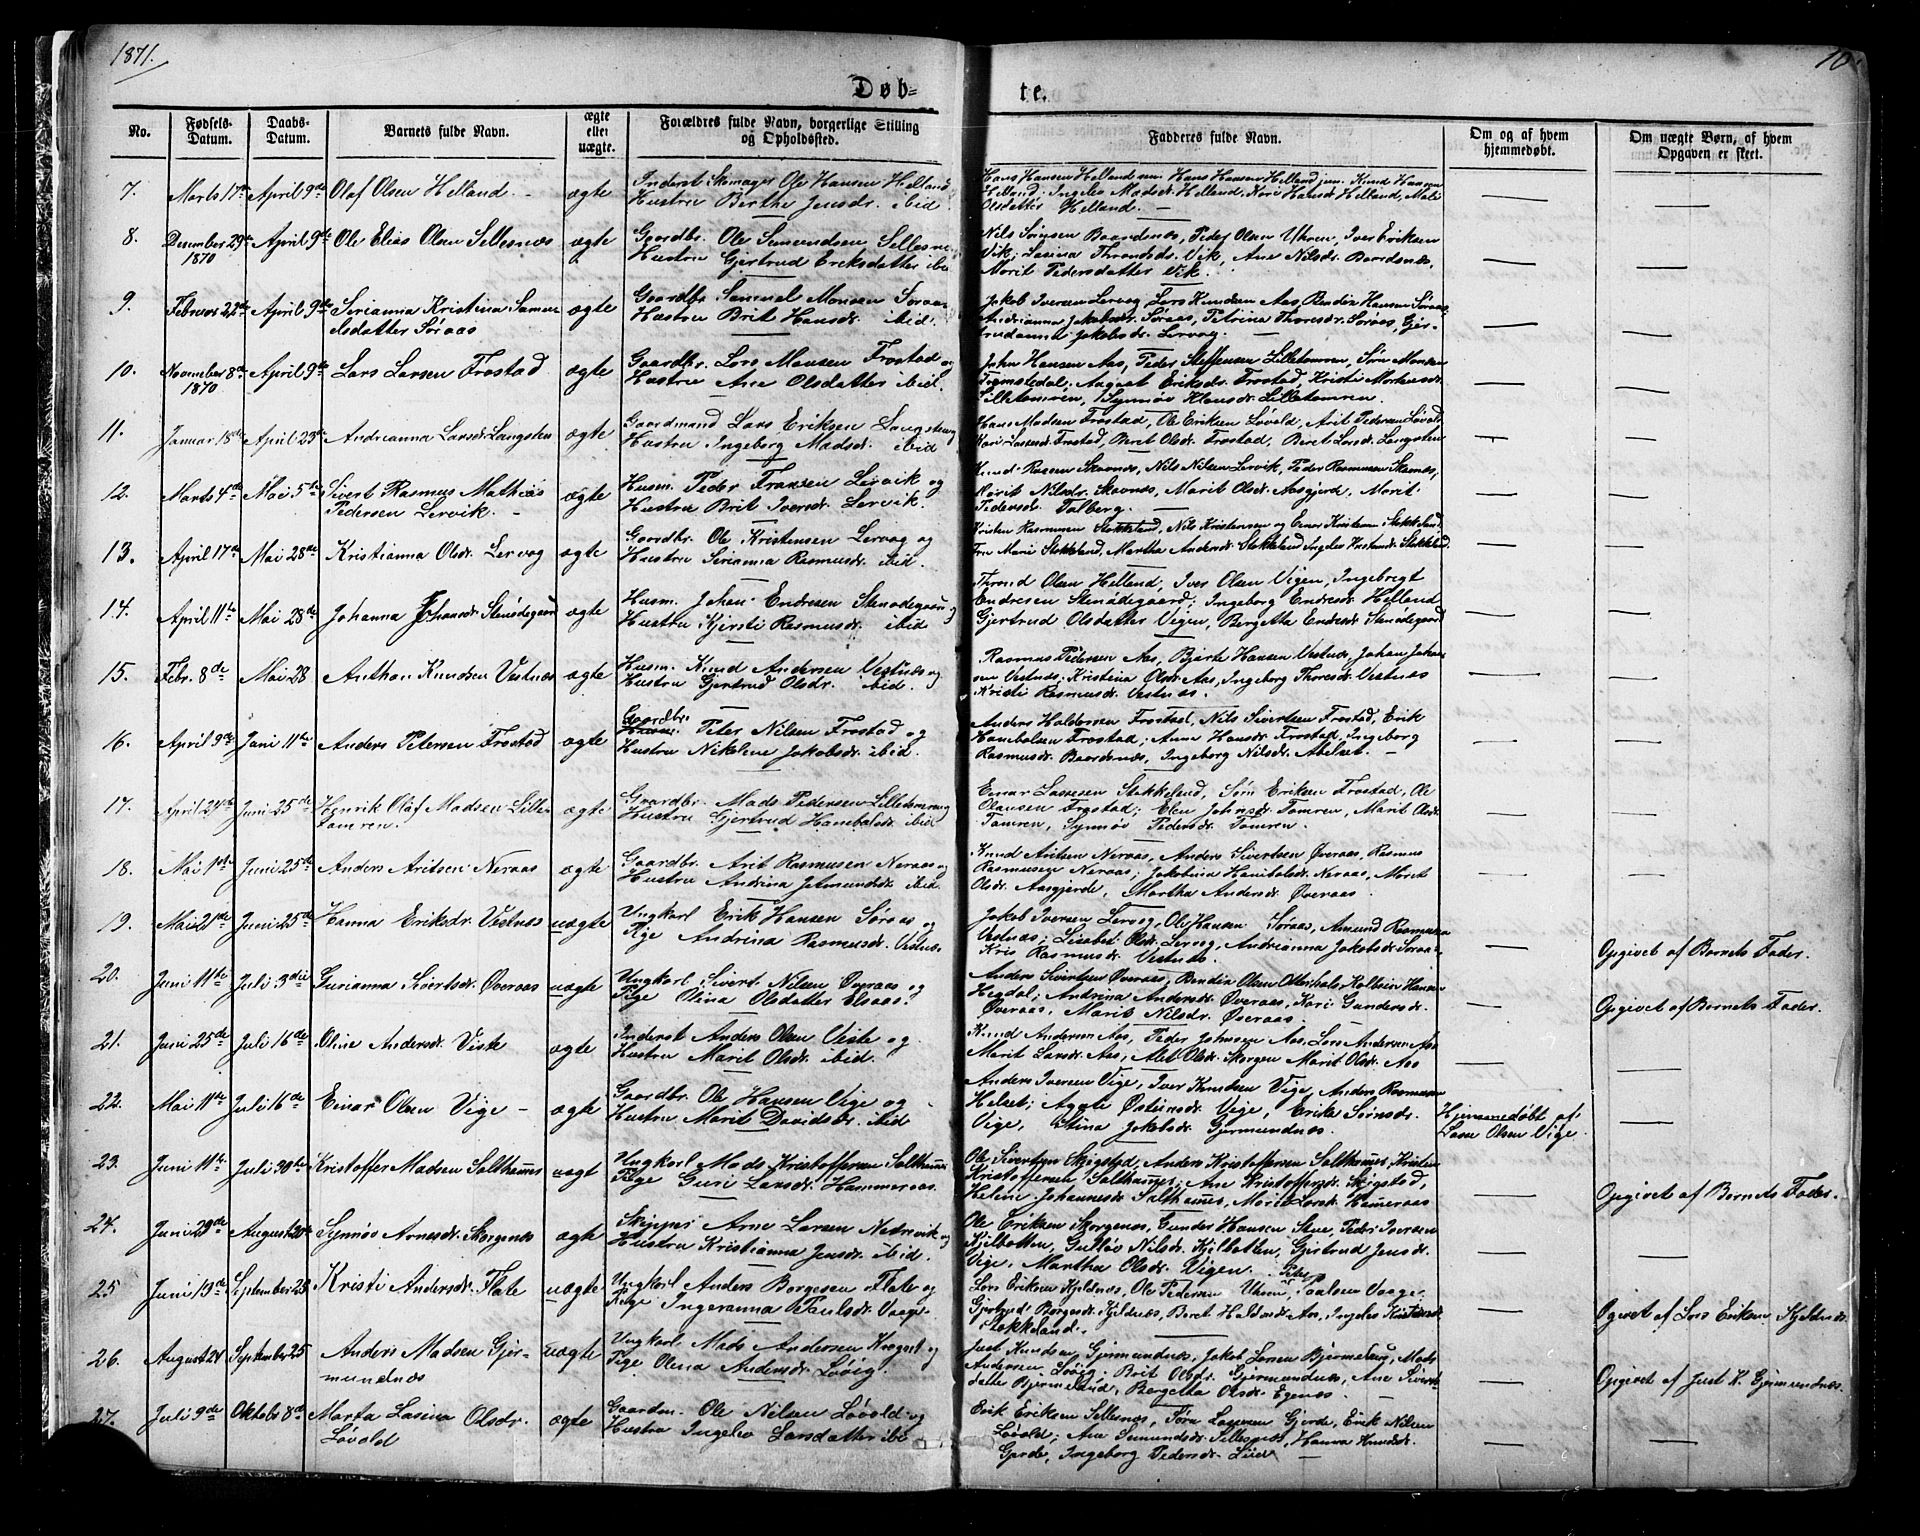 1871.
10.
Døb=
te.
No.
Fødsels-Datum.
Daabs-Datum.
Barnets fulde Navn.
ægte eller uægte.
Forældres fulde Navn, borgerlige Stilling og Opholdssted.
Fadderes fulde Navn.
Om og af hvem hjemmedøbt.
Om uægte Børn, af hvem Opgaven er skeet.
7. Marts 17de April 9de Olaf Olsen Helland ægte Inderst Skomager Ole Hansen Helland
Hustru Berthe Jensdr. ibid
Helland, Ingelev Madsdr. Helland,
Olsdatter Helland.
8. Desember 29de April 9de Ole Elias Olsen Sellesnæs ægte Gaardbr. Ole Semundsen Sellesnæs
1870 Hustru Gjertrud Eriksdatter ibid
Nils Sørensen Baardsnæs, Peder Olsen Uhren, Iver Eriksen
Vik; Lasina Throndsdr. Vik, Ane Nilsdr. Bardsnæs,
Marit Pedersdatter Vik.
9. Februar 22de April 9de Serianna Kristina Samu- ægte Gaardbr. Samuel Monsen Søraas
elsdatter Søraas Hustru Brit Hansdr. ibid.
Jakob Iversen Lervog, Lars Knudsen Aas, Bendix Hansen Søraas,
Andrianna Jakobsdr. Søraas, Petrina Thoresdr. Søraas, Gjer-
trudanna Jakobsdr. Lervog.
10. November 8de April 9de Lars Larsen Frostad ægte Gaardbr. Lars Monsen Frostad og
1870 Hustru Ane Olsdatter ibid.
John Hansen Aas, Peder Steffensen Lilletomren, Søren Monsen
Eriksdr. Frostad, Kristi Mortensdr.
Lilletomren, Synnøv Klausdr. Lilletomren.
11. Januar 18de April 23de Andrianna Larsdr. Langsten ægte Gaardmand Lars Eriksen Langsten og
Hustru Ingeborg Madsdr. ibid
Hans Madsen Frostad, Ole Eriksen Løvold, Arit Pedersen Løvold
Kari Lassesdr. Frostad, Beret Olsdr. Frostad, Beret Larsdr. Langsten
12. Marts 4de Mai 5te Sivert Rasmus Mathias ægte Husm. Peder Fransen Lervik og
Pedersen Lervik. Hustru Brit Iversdr. Lervik.
Knud Rassen Skavnæs, Nils Nilsen Lervik, Peder Rasmussen Skavnæs,
Marit Nilsdr. Skavnæs, Marit Olsdr. Aasgjerde, Marit
Pedersdr. Talberg.
13. April 17de Mai 28de Kristianna Olsdr. Lervog ægte Gaardbr. Ole Kristensen Lervog og
Hustru Serianna Rasmusdr. ibid.
Kristen Rasmussen Stokkeland, Nils Kristensen og Einar Kristensen Stokkeland
Fru Marie Stokkeland, Martha Andersdr. Stokkeland, Ingelev Stokkeland.
14. April 11te Mai 28de Johanna Johansdr. Stenødegaard ægte Husm. Johan Endresen Stenødegaard og
Hustru Kjersti Rasmusdr. ibid
Thrond Olsen Helland, Iver Olsen Vigen, Ingebrigt
Endresen Stenødegaard; Ingeborg Endresdr. Helland
Gjertrud Olsdatter Vigen, Bergetta Endresdr. Stenødegaard
15. Febr. 8de Mai 28 Anthon Knudsen Vestnæs ægte Husm. Knud Andersen Vestnæs og
Hustru Gjertrud Olsdr. ibid.
Rasmus Pedersen Aas, Bjarte Hansen Vestnæs, Johan Johan-
sen Vestnæs, Kristina Olsdr. Aas, Ingeborg Thoresdr. Vestnæs
Kristi Rasmusdr. Vestnæs.
Gaardbr.
16. April 9de Juni 11te Anders Petersen Frostad ægte Husm. Peter Nilsen Frostad og
Hustru Nikoline Jakobsdr. ibid
Anders Haldorsen Frostad, Nils Sivertsen Frostad, Erik
Hanibalsen Frostad; Anne Hansdr. Frostad, Ingeborg
Rasmusdr. Baardsnæs, Ingeborg Nilsdr. Abelset.
17. April 24de Juni 25de Henrik Olaf Madsen Lille- ægte Gaardbr. Mads Pedersen Lilletomren og
tomren. Hustru Gjertrud Hanibalsdr. ibid
Einar Lassesen Stokkeland, Søren Eriksen Frostad, Ole
Olausen Frostad; Elen Johnsdr. Tomren, Marit Olsdr.
Tomren, Synnøv Pedersdr. Tomren.
18. Mai 1ste Juni 25de Anders Aritsen Neraas ægte Gaardbr. Arit Rasmusen Neraas og
Hustru Andrina Jetmundsdr. ibid
Knud Aritsen Neraas, Anders Sivertsen Øveraas, Rasmus
Rasmussen Neraas; Jakobina Hanibalsdr. Neraas, Marit
Olsdr. Aasgjerde, Martha Andersdr. Øveraas.
19. Mai 21de Juni 25de Hanna Eriksdr. Vestnæs uægte Ungkarl Erik Hansen Søraas og
Pige Andrina Rasmusdr. Vestnæs
Jakob Iversen Lervog, Ole Hansen Søraas, Amund Rasmussen
Vestnæs; Lisabet Olsdr. Lervog, Andrianna Jakobsdr. Søraas
Kris Rasmusdr. Vestnæs.
Opgivet af Barnets Fader.
20. Juni 11te Juli 3die Gurianna Sivertsdr. Øveraas uægte Ungkarl Sivert Nilsen Øveraas og
Pige Olina Olsdatter Elsaas.
Anders Sivertsen Øveraas, Bendix Olsen Otterhals, Kolbein Hansen
Hegdal; Andrina Andersdr. Øveraas, Kari Gundersdr.
Øveraas, Marit Nilsdr. Øveraas.
Opgivet af Barnets Fader.
21. Juni 25de Juli 16de Oline Andersdr. Viste ægte Inderst Anders Olsen Viste og
Hustru Marit Olsdr. ibid.
Knud Andersen Aas, Peder Johnsen Aas, Lars Andersen Aas
Marit Larsdr. Aas, Alet Olsdr. Skorgen Marit Olsdr. Aas
22. Mai 11te Juli 16de Einar Olsen Vige ægte Gaardbr. Ole Hansen Vige og
Hustru Marit Davidsdr. ibid
Anders Iversen Vige, Iver Knudsen Vige, Anders Rasmussen
Helset; Agate Østensdr. Vige, Erike Sørensdr.
Vige, Stina Jakobsdr. Gjermundnæs.
Hjemmedøbt af
Lasse Olsen Vige.
23. Juni 11te Juli 30te Kristoffer Madsen Salthamer uægt Ungkarl Mads Kristoffersen Salthamer
Pige Guri Larsdr. Hammeraas.
Ole Sivertsen Skigstad, Anders Kristoffersen Salthamer, Kristen
Kristoffersen Salthamer, Ane Kristoffersdr. Skigstad,
Heline Johannesdr. Salthamer, Marie Larsdr. Hameraas
Opgivet af Barnets Fader.
24. Juni 29de August 20de Synnøv Arnesdr. Skorgenæs ægte Skipper Arne Larsen Nedrevik og
Hustru Kristianna Jensdr. ibid.
Ole Eriksen Skorgenæs, Gunder Hansen Stue, Peder Iversen
Kjelbotten, Gulløv Nilsdr. Kjelbotten, Gjertrud Jensdr.
Vige, Martha Olsdr. Vigen.
25 Juni 13de September 25 Kristi Andersdr. Flate uægte Ungkarl Anders Borgesen Flate og
Pige Ingeranna Paulsdr. Vaage
Lars Eriksen Kjeldnæs, Ole Pedersen Uhren, Peter Paulsen Vaage
Gjertrud Borgesdr. Kjeldnæs, Beret Aas, Ingelev
Stokkeland.
Ogivet af Lars Eriksen Kjeldnæs
26. August 24 September 25 Anders Madsen Gjer- uægte Ungkarl Mads Andersen og
mundnæs Pige Olena Andersdr. Løvig
Just Knudsen Gjermundnæs, Jakob Larsen Bjermeland, Mads
Andersen Løvig; Brit Olsdr. Gjermundnæs, Ane Sivers-
datter Bjermeland, Bergetta Olsdr. Egenæs.
Opgivet af Just K. Gjermundnæs
27. Juli 9de Oktobr 8de Marta Lasina Olsdr. ægte Gaardm. Ole Nilsen Løvold og
Løvold Hustru Ingelev Larsdatter ibid
Erik Eriksen Sellesnæs, Lassesen Gjerde, Erik Nilsen
Løvold; Ane Semundsdr. Sellesnæs, Hanna Knudsdr.
Gjerde, Ingeborg Pedersdr. Lien